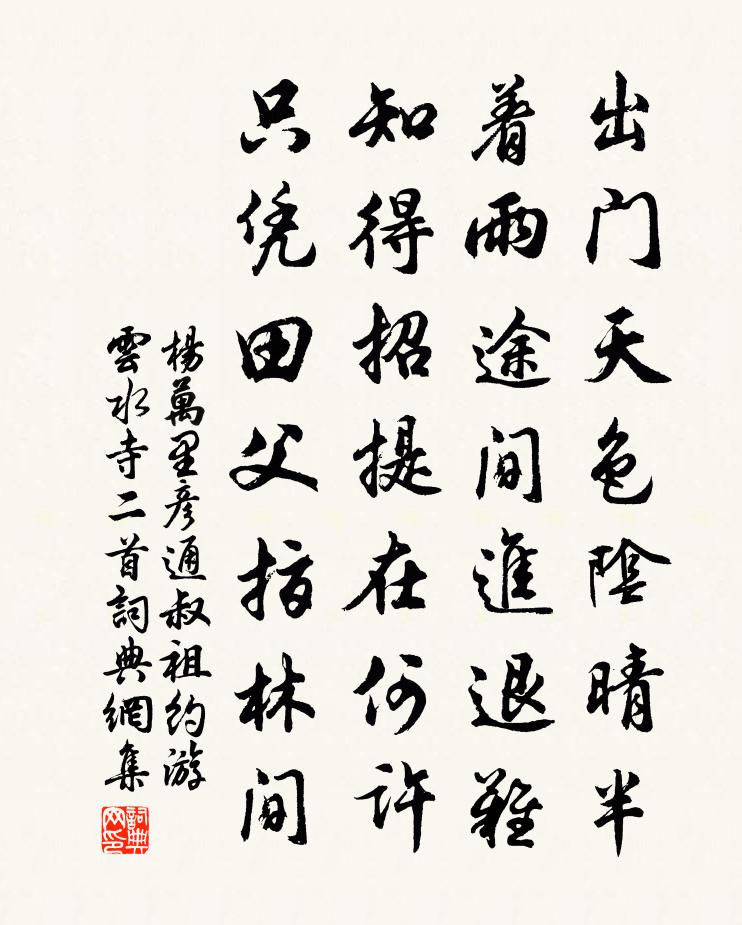 出门天色陰晴半
着雨途间進退難
知得招提在何许
只凭田父指林间
楊萬里彦通叔祖约游
雲水寺二首詞典網集
詞典
网印